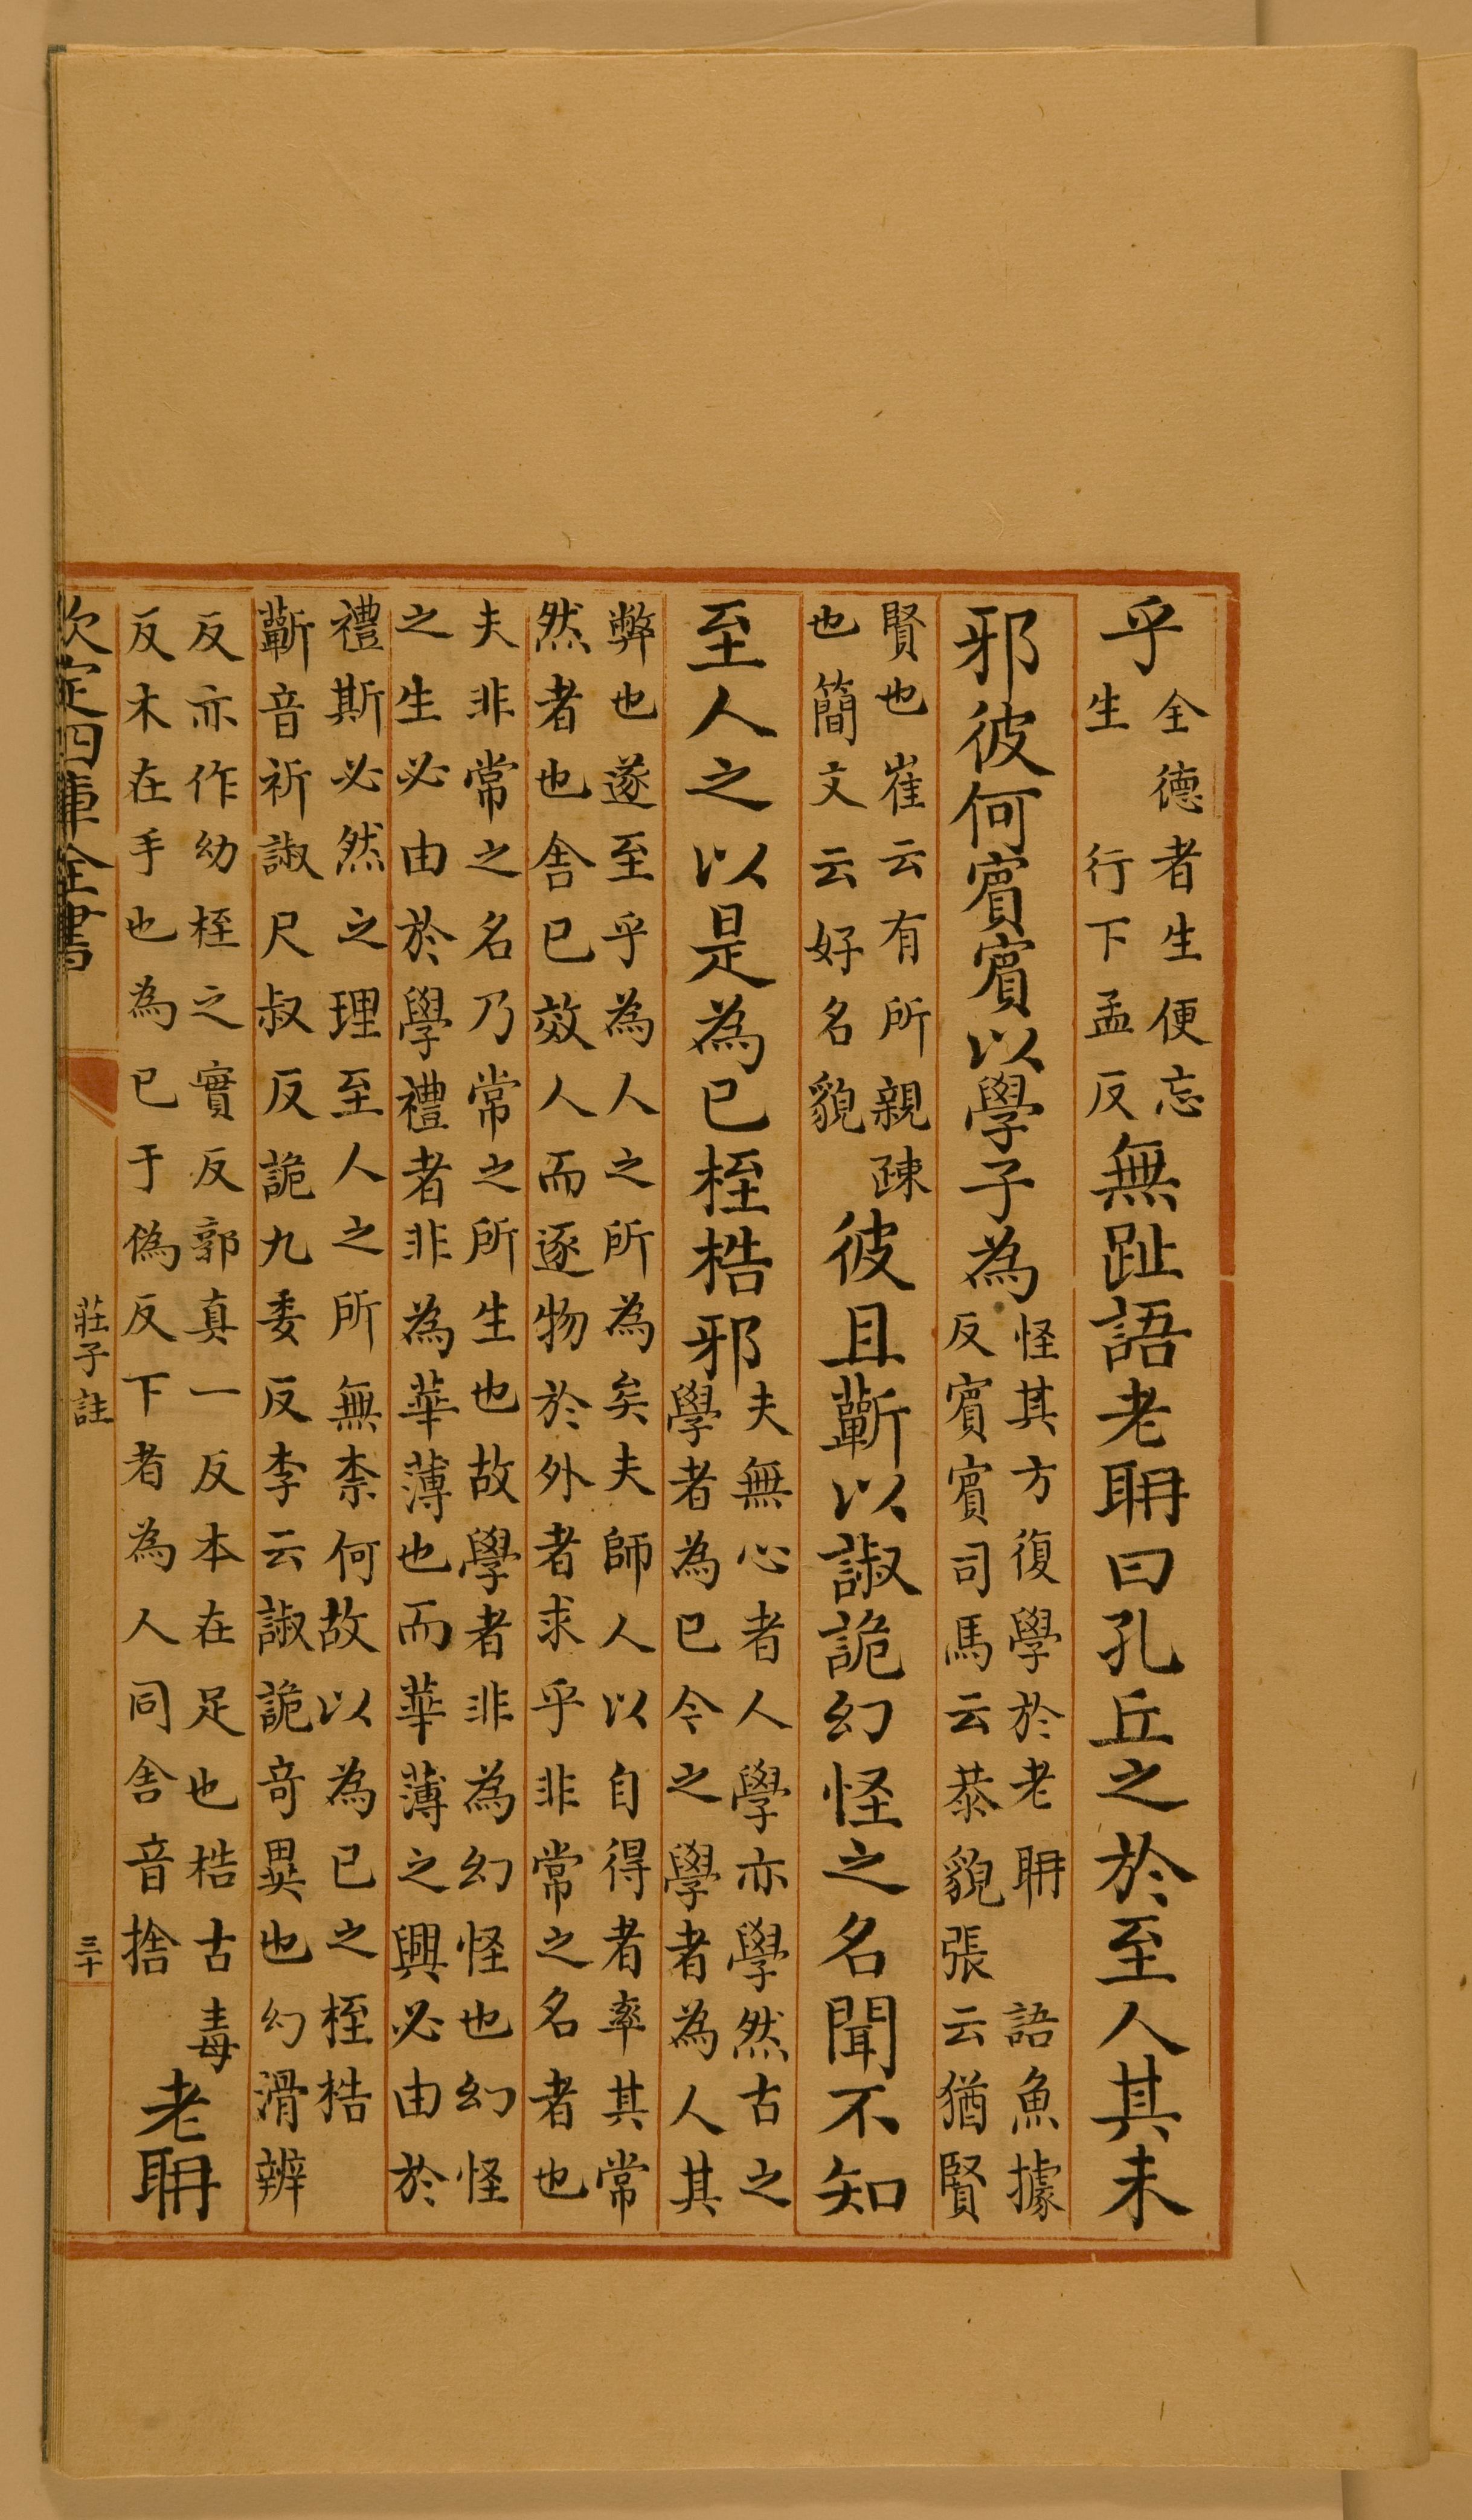 乎全德者生便忘生　行下孟反無趾語老耼曰孔丘之於至人其未
邪彼何賔賔以學子為怪其方復學於老耼　語魚據反賔賔司馬云恭貌張云猶賢
賢也崔云有所親疎也簡文云好名貌彼且蘄以諔詭幻怪之名聞不知
至人之以是為已桎梏邪夫無心者人學亦學然古之學者為已今之學者為人其
弊也遂至乎為人之所為矣夫師人以自得者率其常然者也舍已效人而逐物於外者求乎非常之名者也
夫非常之名乃常之所生也故學者非為幻怪也幻怪之生必由於學禮者非為華薄也而華薄之興必由於
禮斯必然之理至人之所無柰何故以為已之桎梏蘄音祈諔尺叔反詭九委反李云諔詭竒異也幻滑辨
反亦作幼桎之實反郭真一反本在足也梏古毒反木在手也為已于偽反下者為人同舍音捨老耼
欽定四庫全書
莊子註
三十